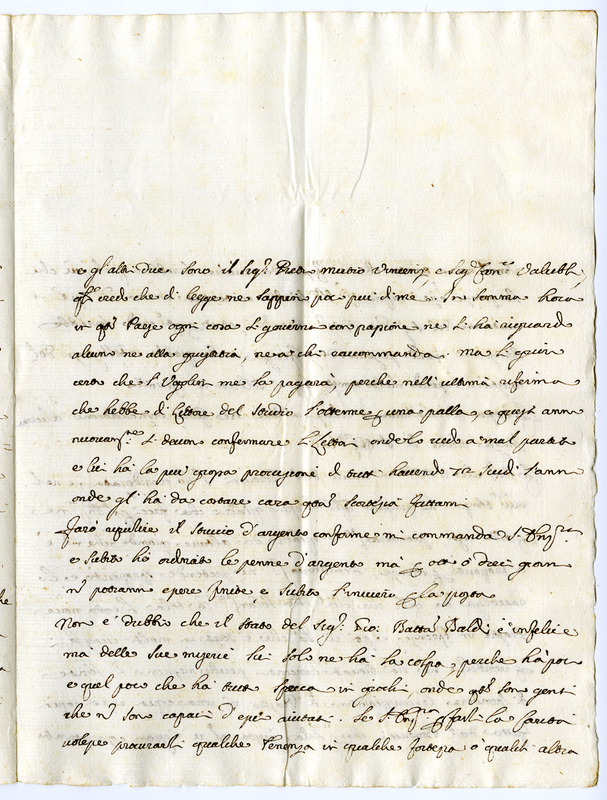 e gl'altri due sono il Sig.r Pietro mutio Vincenz e Sig.r
credo che di legge ne sappino poco più di me. In somma hora
in q.to Paese ogni cosa si governa con passione ne si ha riguardo
alcuno ne alla giustitia, ne a chi raccommanda. ma
certo che me la pagarà, perche nell'ultima riforma
che hebbe di Lettore del Studio l'ottenne una palla, e quest'anno
si devon confermare onde lo vedo a mal partito
e lui ha la più grossa provisione di tutti havendo 72 Scudi l'anno
onde gl'ha da costare cara q.ta scortesia fattami
Farò il stuccio d'argento conforme mi commanda
e subito hò ordinato le penne d'argento mà otto ò dieci giorni
n potranno essere finite e subito la posta
Non e dubbio che il stato del Sig.r Gio: Batta Baldi è infelice
mà delle sue miserie lui solo ne hà la colpa, perche hà poco
e quel poco che ha tutto in giochi, onde q.ti son genti
che n sono capaci d'esser aiutati. Se la
volesse procurarli qualche Tenenza in qualche fortezza ò altra